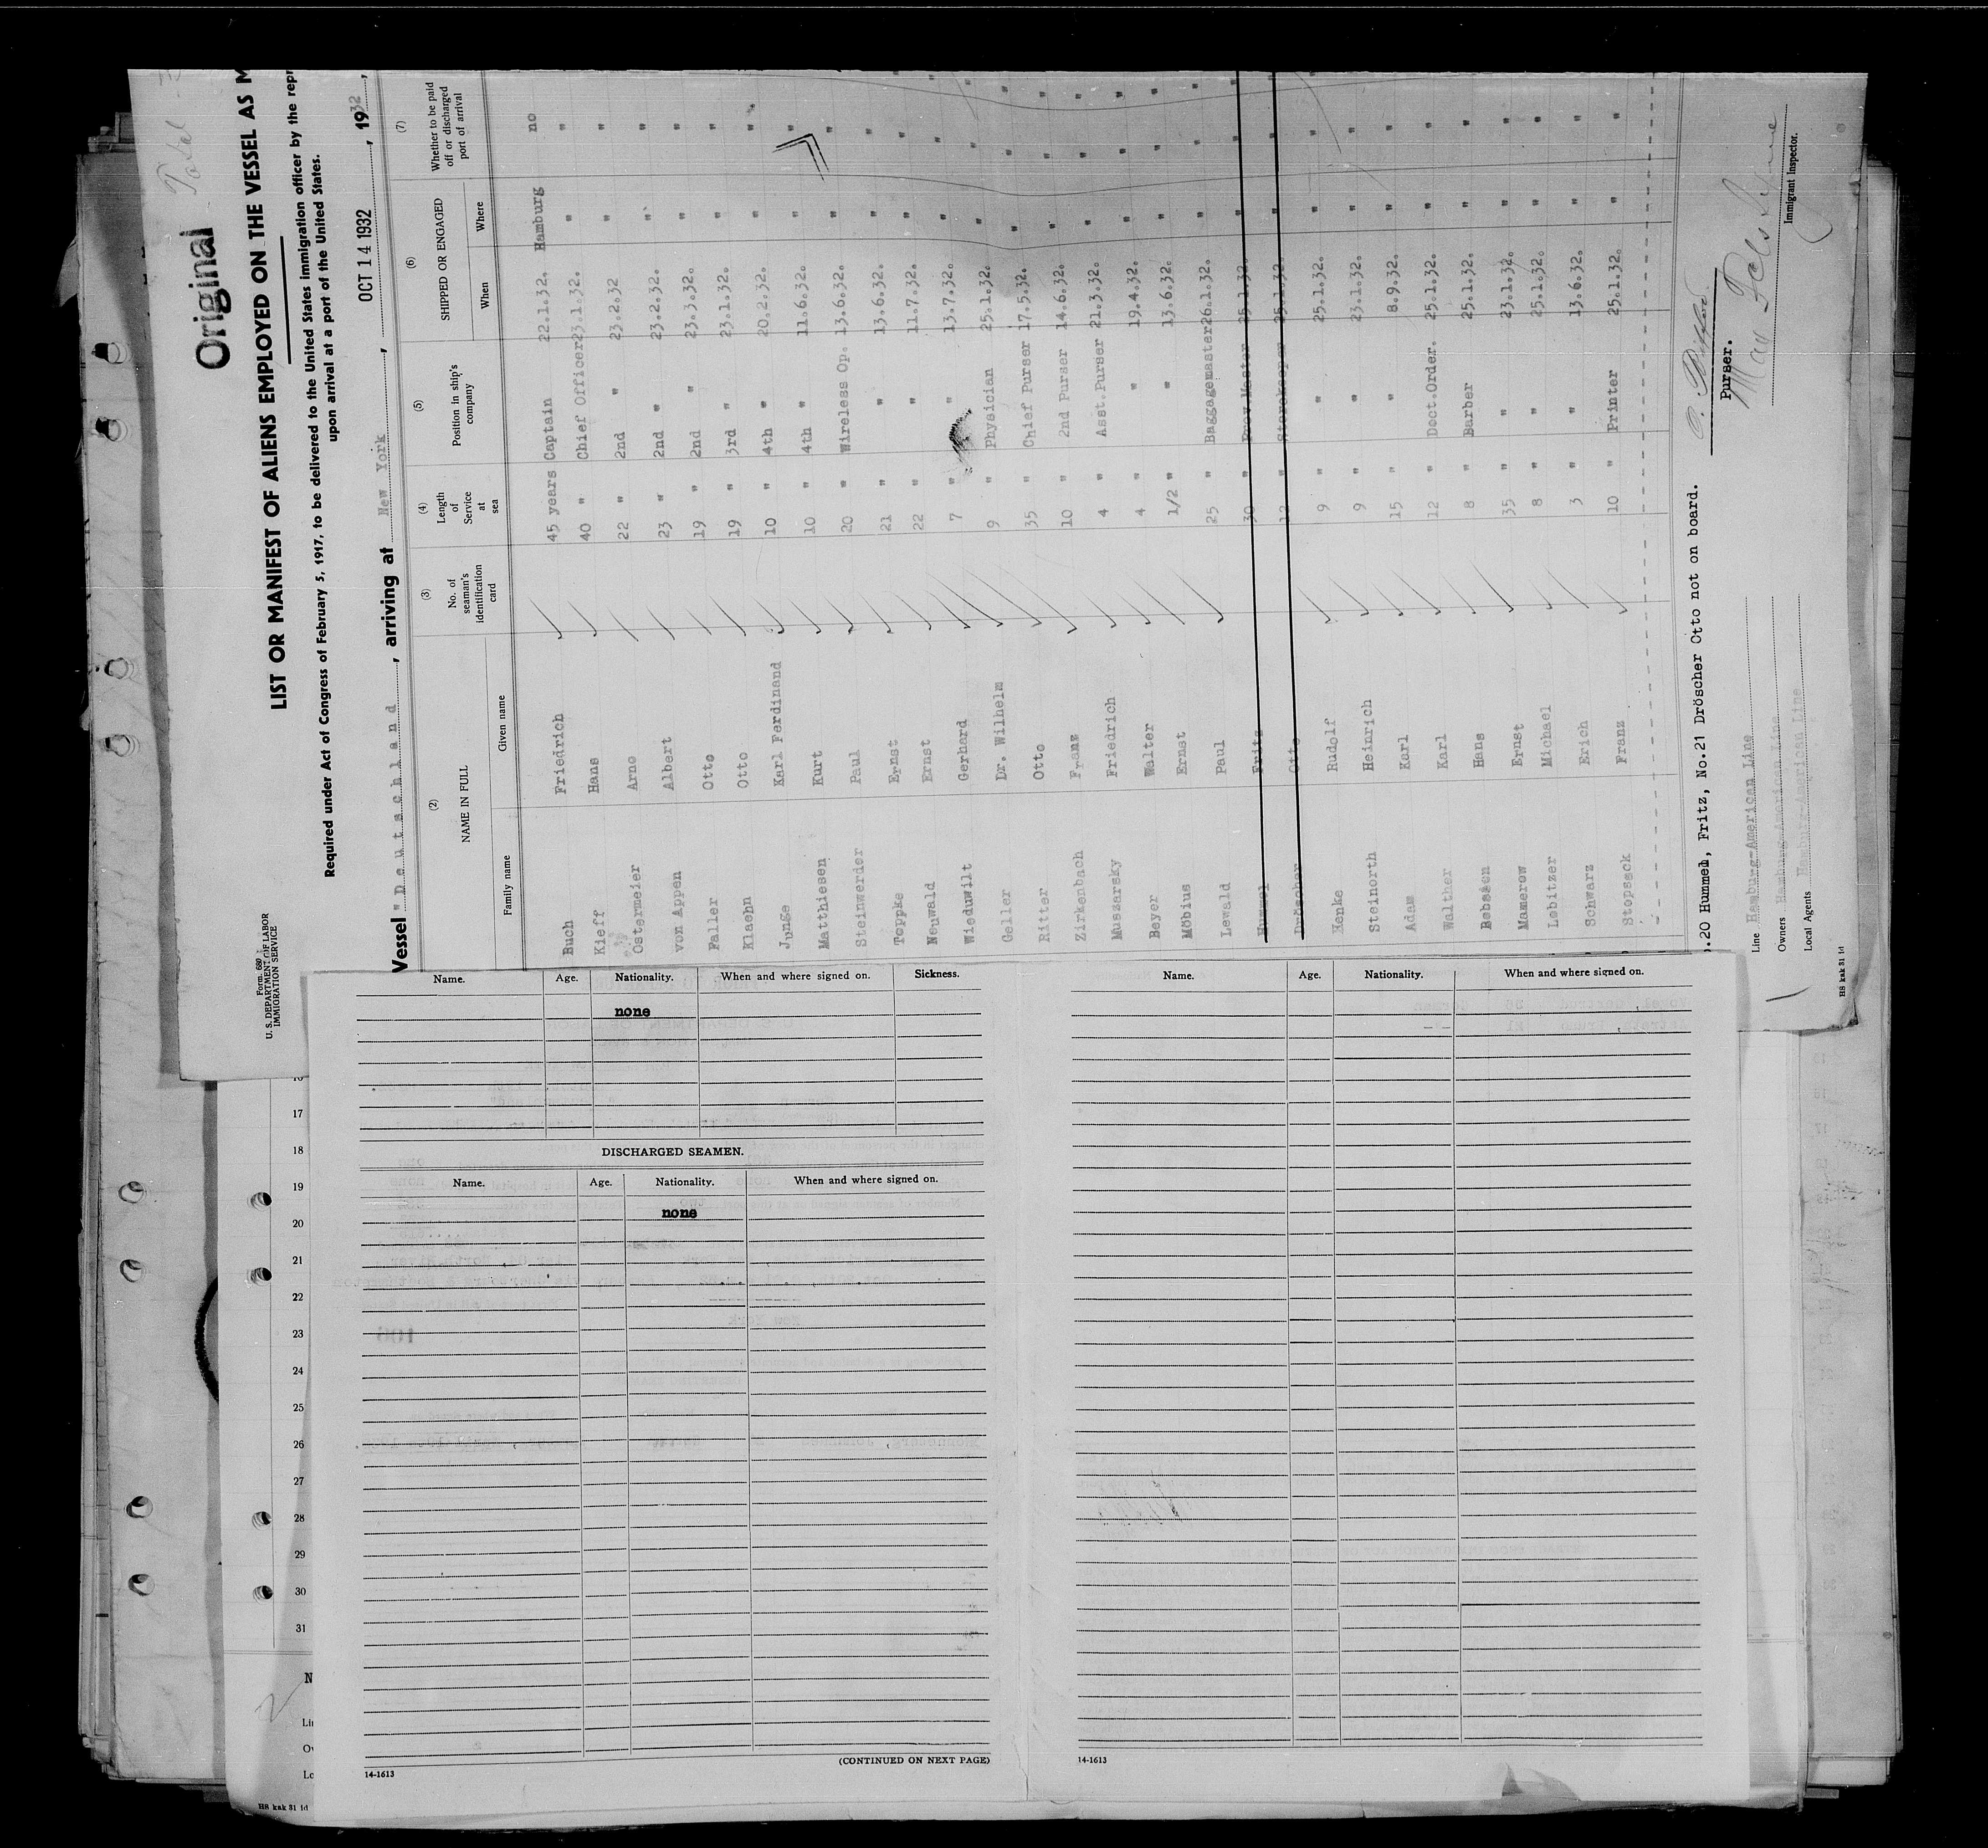 Original
Form 680
U. S. DEPARTMENT OF LABOR
IMMIGRATION SERVICE
LIST OR MANIFEST OF ALIENS EMPLOYED ON THE VESSEL AS M
Required under Act of Congress of February 5, 1917, to be delivered to the United States immigration officer by the repr
upon arrival at a port of the United States.
Vessel "Deutschland , arriving at New York , OCT 14 1932 , 1932 ,
(2) (3) (4) (5) (6) (7)
NAME IN FULL
Family name Given name
No. of seaman's identification card
Length of Service at sea
Position in ship's company
SHIPPED OR ENGAGED
When Where
Whether to be paid off or discharged port of arrival
Buch Friedrich 45 years Captain 22.1.32. Hamburg no
Kieff Hans 40 " Chief Officer 23.1.32. " "
Ostermeier Arno 22 " 2nd " 23.2.32 " "
von Appen Albert 23 " 2nd " 23.2.32. " "
Faller Otto 19 " 2nd " 23.3.32. " "
Klaehn Otto 19 " 3rd " 23.1.32. " "
Junge Karl Ferdinand 10 " 4th " 20.2.32. " "
Matthiesen Kurt 10 " 4th " 11.6.32. " "
Steinwerder Paul 20 " Wireless Op. 13.6.32. " "
Toppke Ernst 21 " " 13.6.32. " "
Neuwald Ernst 22 " " 11.7.32. " "
Wieduwilt Gerhard 7 " " 13.7.32. " "
Geller Dr. Wilhelm 9 " Physician 25.1.32. " "
Ritter Otto 35 " Chief Purser 17.5.32. " "
Zirkenbach Franz 10 " 2nd Purser 14.6.32. " "
Muszarsky Friedrich 4 " Asst.Purser 21.3.32. " "
Beyer Walter 4 " " 19.4.32. " "
Möbius Ernst 1/2 " " 13.6.32. " "
Lewald Paul 25 " Baggagemaster 26.1.32. " "
Hummel Fritz 30 " Prov.Master 25.1.32. " "
Dröscher Otto 12 " Storekeeper 25.1.32. " "
Henke Rudolf 9 " " 25.1.32. " "
Steinorth Heinrich 9 " " 23.1.32. " "
Adam Karl 15 " " 8.9.32. " "
Walther Karl 12 " Doct.Order. 25.1.32. " "
Bebsien Hans 8 " Barber 25.1.32. " "
Mamerow Ernst 35 " " 23.1.32. " "
Lobitzer Michael 8 " " 25.1.32. " "
Schwarz Erich 3 " " 13.6.32. " "
Stopsack Franz 10 " Printer 25.1.32. " "
.20 Hummel, Fritz, No.21 Dröscher Otto not on board.
Purser.
Line Hamburg-American Line
Owners Hamburg-American Line
Local Agents Hamburg-American Line
Immigrant Inspector.
HS kak 31 1d
Name. Age. Nationality. When and where signed on. Sickness.
none
DISCHARGED SEAMEN.
Name. Age. Nationality. When and where signed on.
none
(CONTINUED ON NEXT PAGE)
14-1613
Name. Age. Nationality. When and where signed on.
14-1613
17
18
19
20
21
22
23
24
25
26
27
28
29
30
31
N
HS kak 31 1d